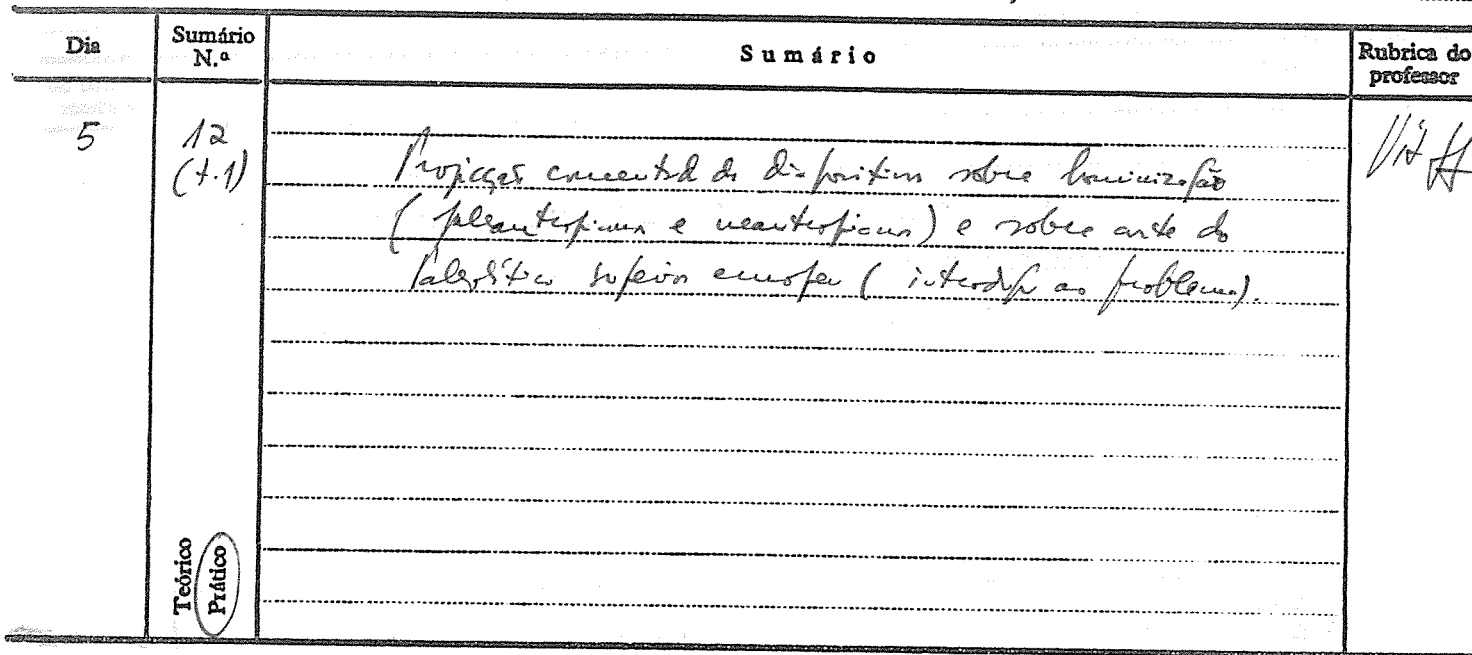 Dia
Sumário
N.º
Sumário
Rubrica do
professor
5
12
(t.1)
Projecção comentada de diapositivos sobre hominização
(paleantropianos e neantropianos) e sobre arte do
Paleolítico superior europeu (introdução ao problema).
Teórico
Prático